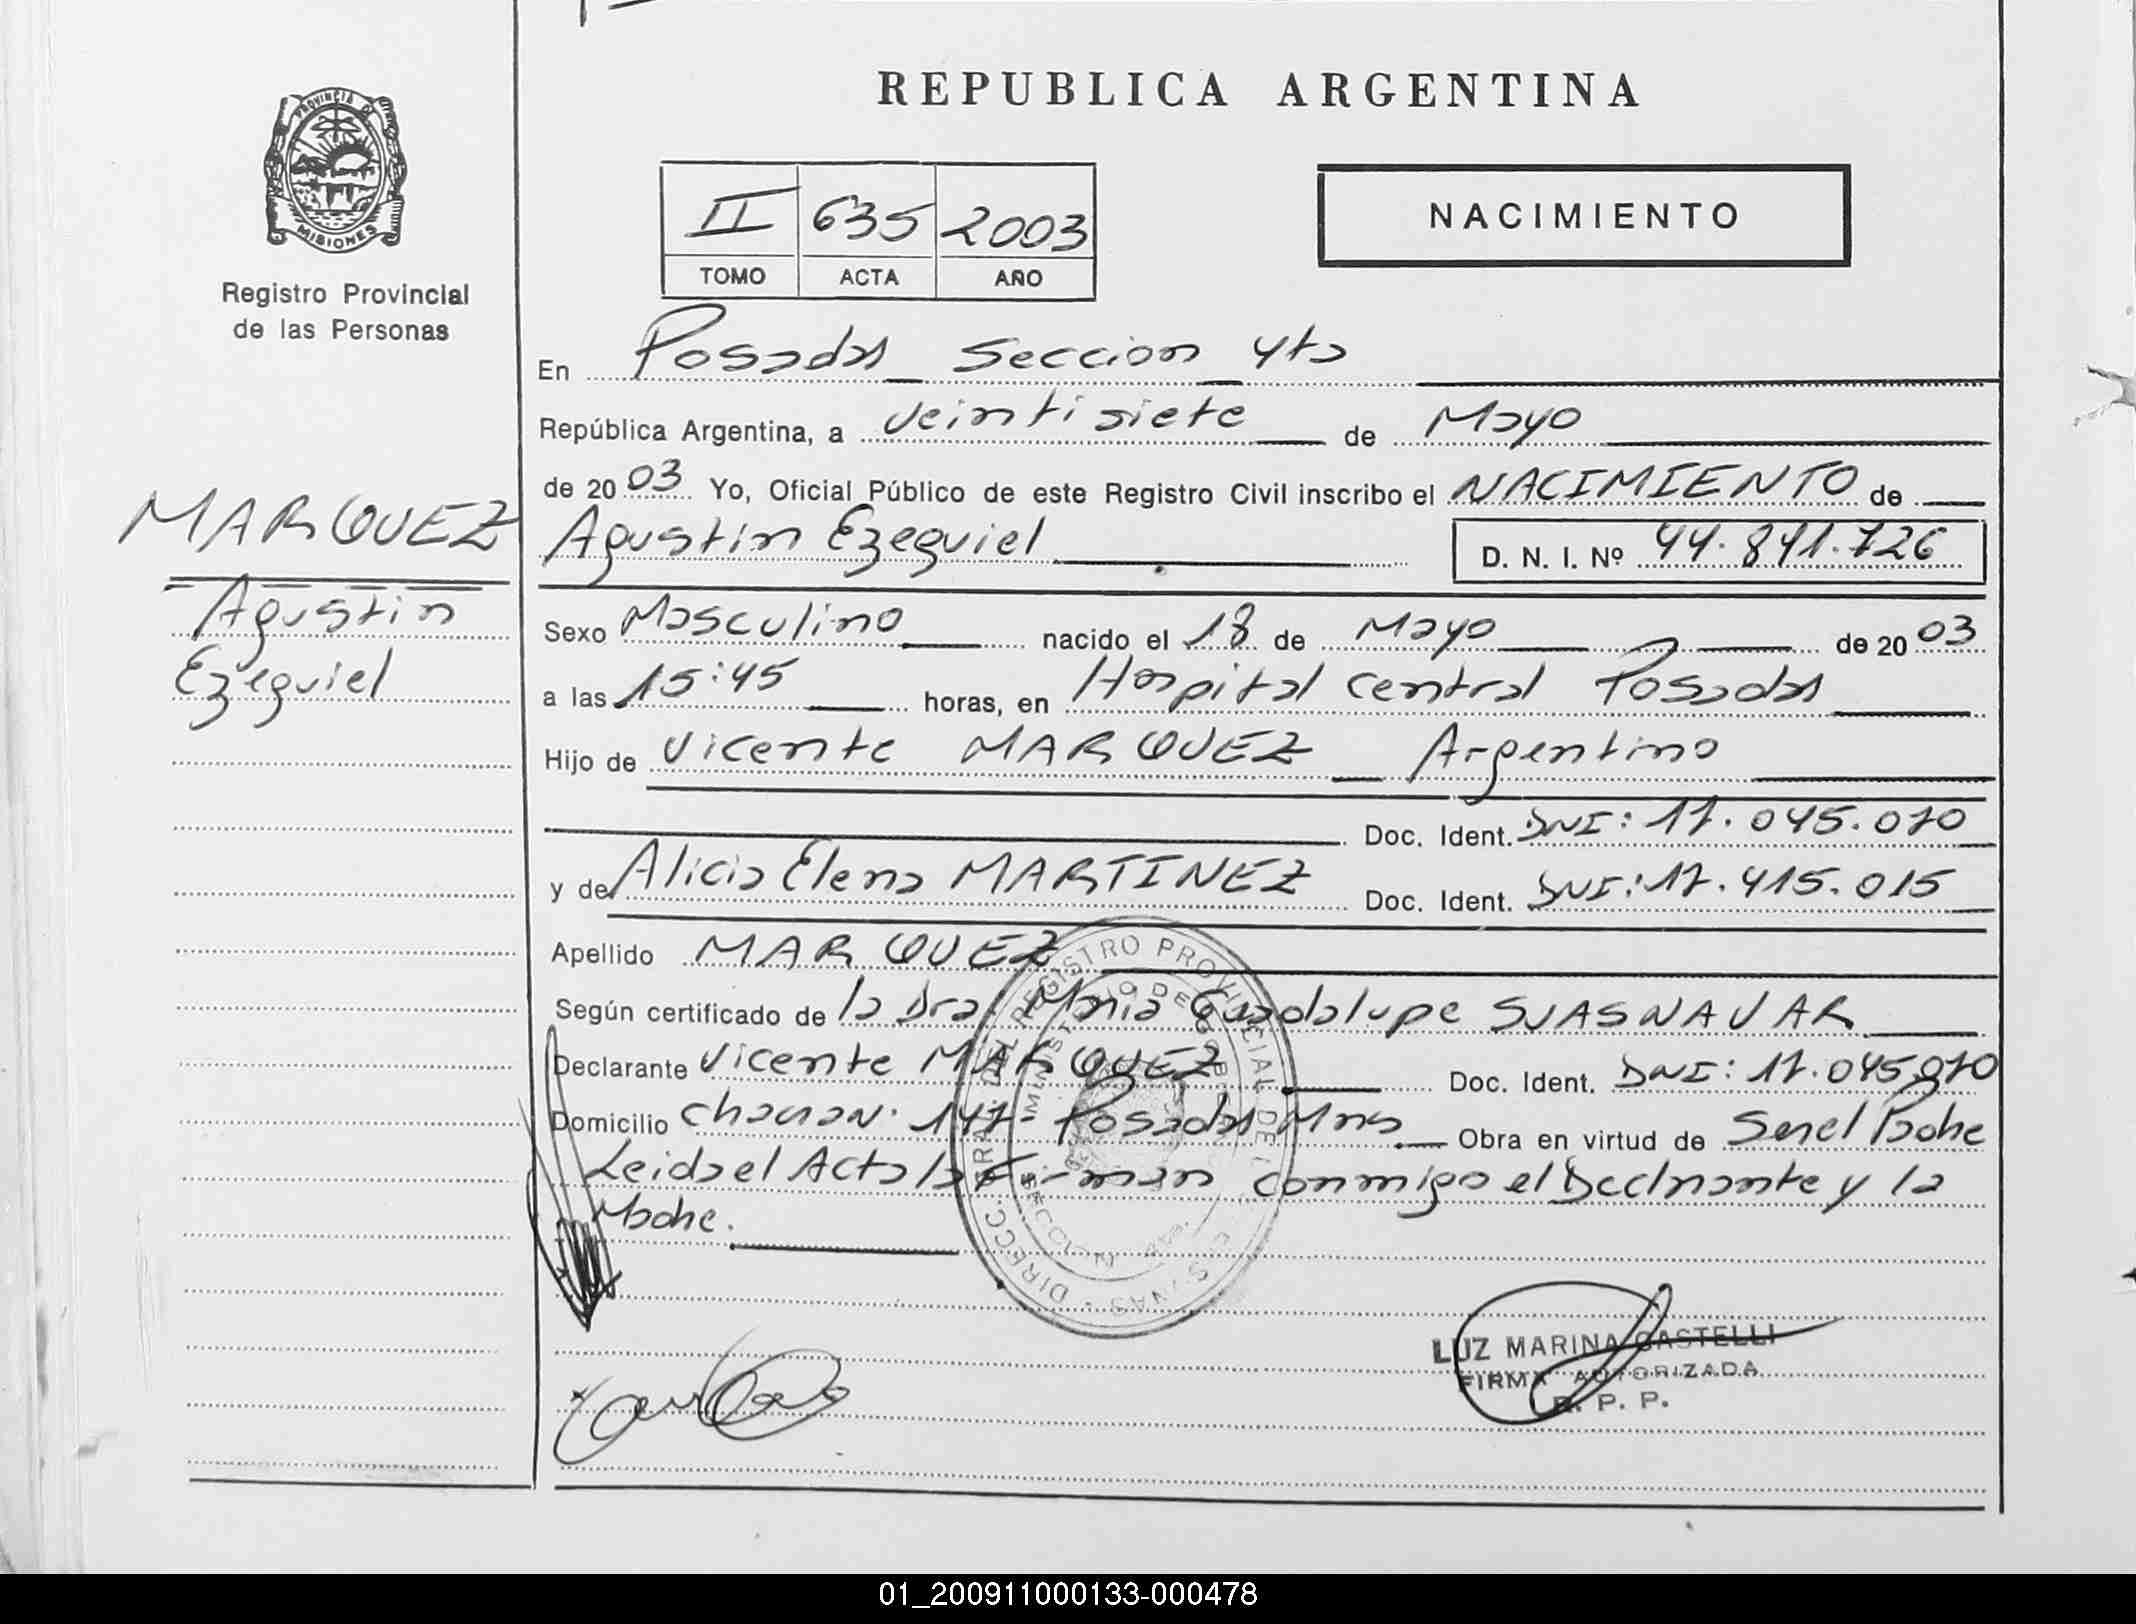 REPUBLICA ARGENTINA
PROVINCIA DE
MISIONES
Registro Provincial
de las Personas
II 635 2003
TOMO ACTA AÑO
NACIMIENTO
En Posadas Seccion 4ta
República Argentina, a veintisiete de Mayo
de 2003 Yo, Oficial Público de este Registro Civil inscribo el NACIMIENTO de
MARQUEZ
Agustin
Ezequiel
Agustin Ezequiel D. N. I. Nº 44.841.726
Sexo Masculino nacido el 18 de Mayo de 2003
a las 15:45 horas, en Hospital Central Posadas
Hijo de Vicente MARQUEZ Argentino
Doc. Ident. DNI: 17.045.070
y de Alicia Elena MARTINEZ Doc. Ident. DNI: 17.415.015
Apellido MARQUEZ
Según certificado de la Dra. Maria Guadalupe SUASNAVAR
Declarante Vicente MARQUEZ Doc. Ident. DNI: 17.045.070
Domicilio 147 - Posadas Mnes Obra en virtud de Ser el Padre
Leida el Acta la Firman conmigo el Declarante y la
Madre.
DIRECC. GRAL. DEL REGISTRO PROVINCIAL DE
MINISTERIO DE GOB.
SECCION 4ta.
LUZ MARINA CASTELLI
FIRMA AUTORIZADA
R. P. P.
01_200911000133-000478